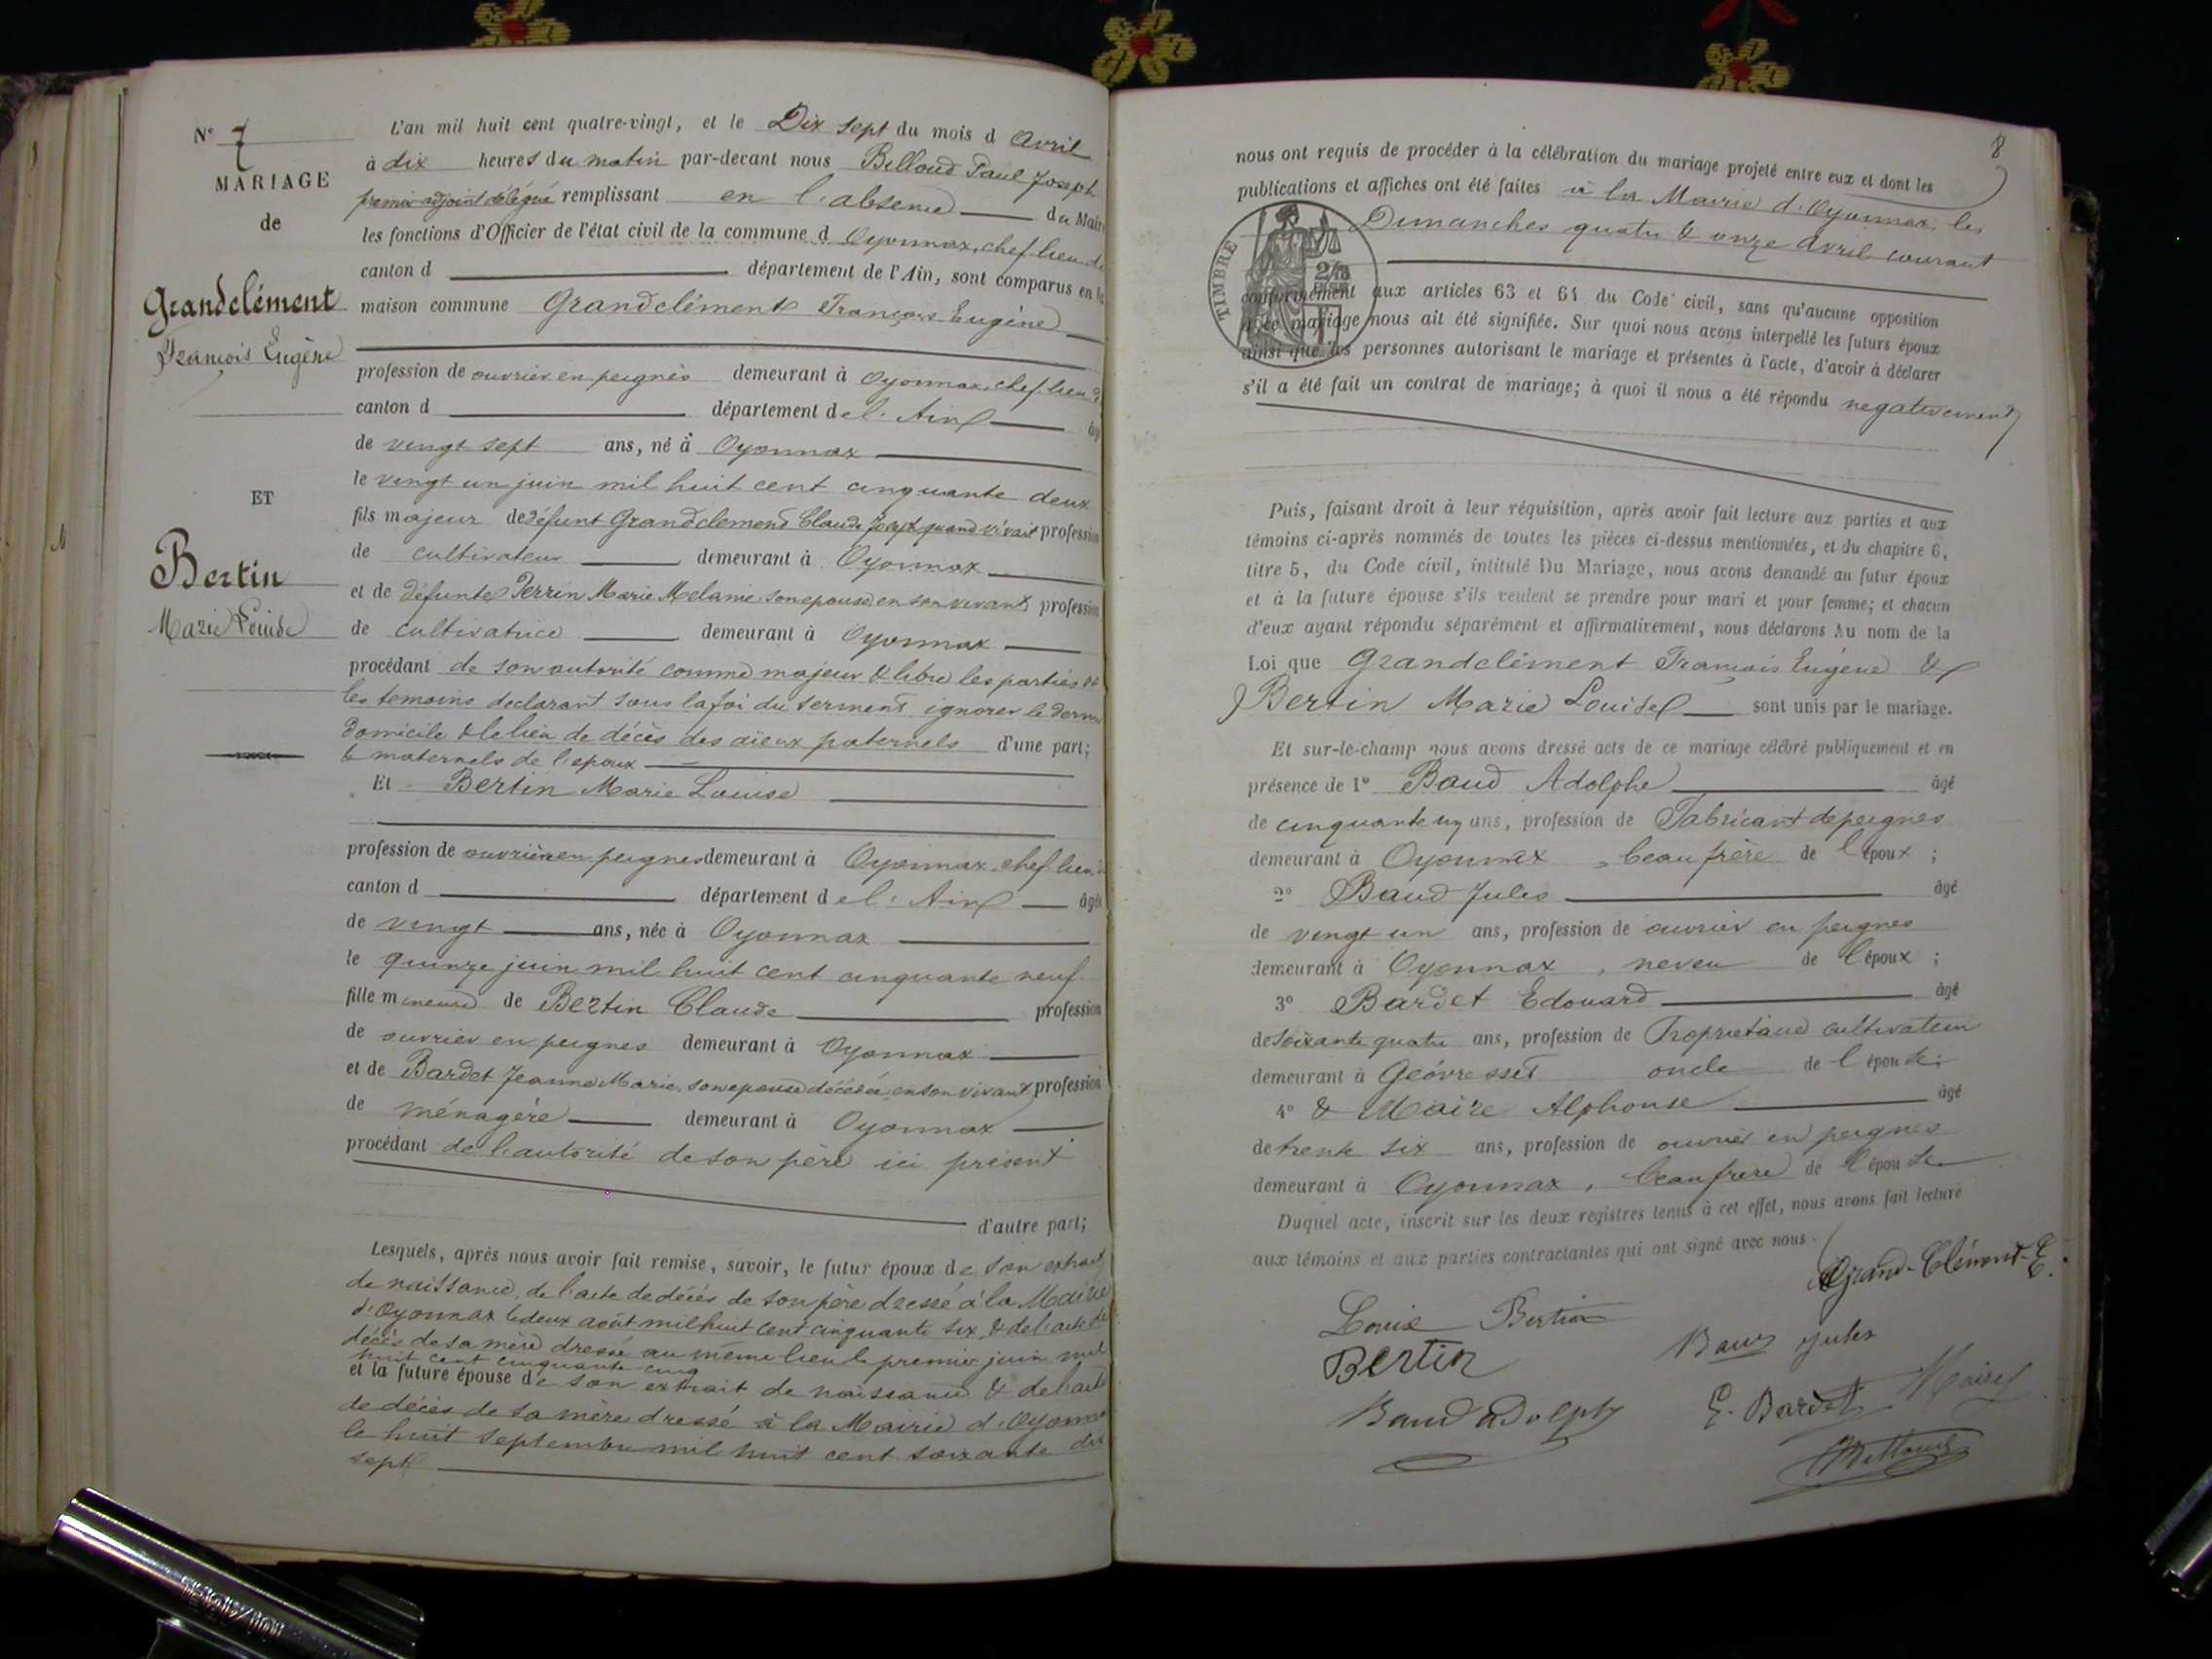 N° 7
MARIAGE
de
Grandclément
François Eugène
ET
Bertin
Marie Louise
L'an mil huit cent quatre-vingt, et le Dix sept du mois d Avril
à dix heures du matin par-devant nous Billoud Paul Joseph
premier adjoint délégué remplissant en l'absence du Maire
les fonctions d'Officier de l'état civil de la commune d Oyonnax, chef lieu de
canton d département de l'Ain, sont comparus en la
maison commune Grandclément François Eugène
profession de ouvrier en peignes demeurant à Oyonnax, chef lieu d
canton d département de l'Ain âg
de vingt sept ans, né à Oyonnax
le vingt un juin mil huit cent cinquante deux
fils majeur de défunt Grandclement Claude Joseph quand vivait profession
de cultivateur demeurant à Oyonnax
et de défunte Perrin Marie Melanie son epouse, en son vivant profession
de cultivatrice demeurant à Oyonnax
procédant de son autorité comme majeur & libre les parties &
les temoins declarant sous la foi du serment ignorer le dernier
domicile & le lieu de décès des aïeux paternels d'une part;
& maternels de l'epoux
Et Bertin Marie Louise
profession de ouvrière en peignes demeurant à Oyonnax, chef lieu d
canton d département de l'Ain âgée
de vingt ans, née à Oyonnax
le quinze juin mil huit cent cinquante neuf
fille mineure de Bertin Claude profession
de ouvrier en peignes demeurant à Oyonnax
et de Bardet Jeanne Marie, son epouse décédée, en son vivant profession
de ménagère demeurant à Oyonnax
procédant de l'autorité de son père ici présent
d'autre part;
Lesquels, après nous avoir fait remise, savoir, le futur époux de son extrait
de naissance, de l'acte de décés de son père dressé à la Mairie
d'Oyonnax le deux août mil huit cent cinquante six, & de l'acte de
décès de sa mère dressé au même lieu le premier juin mil
huit cent cinquante cinq
et la future épouse de son extrait de naissance & de l'acte
de décès de sa mère dressé à la Mairie d'Oyonnax
le huit septembre mil huit cent soixante dix
sept
8
nous ont requis de procéder à la célébration du mariage projeté entre eux et dont les
publications et affiches ont été faites à la Mairie d'Oyonnax, les
Dimanches quatre & onze avril courant
TIMBRE
conformément aux articles 63 et 64 du Code civil, sans qu'aucune opposition
à ce mariage nous ait été signifiée. Sur quoi nous avons interpellé les futurs époux
ainsi que les personnes autorisant le mariage et présentes à l'acte, d'avoir à déclarer
s'il a été fait un contrat de mariage; à quoi il nous a été répondu negativement
Puis, faisant droit à leur réquisition, après avoir fait lecture aux parties et aux
témoins ci-après nommés de toutes les pièces ci-dessus mentionnées, et du chapitre 6,
titre 5, du Code civil, intitulé Du Mariage, nous avons demandé au futur époux
et à la future épouse s'ils veulent se prendre pour mari et pour femme; et chacun
d'eux ayant répondu séparément et affirmativement, nous déclarons Au nom de la
Loi que Grandclément François Eugène &
Bertin Marie Louise sont unis par le mariage.
Et sur-le-champ nous avons dressé acte de ce mariage célébré publiquement et en
présence de 1° Baud Adolphe âgé
de cinquante un ans, profession de Fabricant de peignes
demeurant à Oyonnax, beau frère de l'époux;
2° Baud Jules âgé
de vingt un ans, profession de ouvrier en peignes
demeurant à Oyonnax, neveu de l'époux;
3° Bardet Edouard âgé
de soixante quatre ans, profession de Propriétaire cultivateur
demeurant à Géovresset oncle de l'épouse;
4° & Maire Alphonse âgé
de trente six ans, profession de ouvrier en peignes
demeurant à Oyonnax, beau frère de l'épouse
Duquel acte, inscrit sur les deux registres tenus à cet effet, nous avons fait lecture
aux témoins et aux parties contractantes qui ont signé avec nous.
Grand-Clément E.
Louise Bertin
Baud Jules
Bertin
Maire
E. Bardet
Baud Adolphe
Billoud